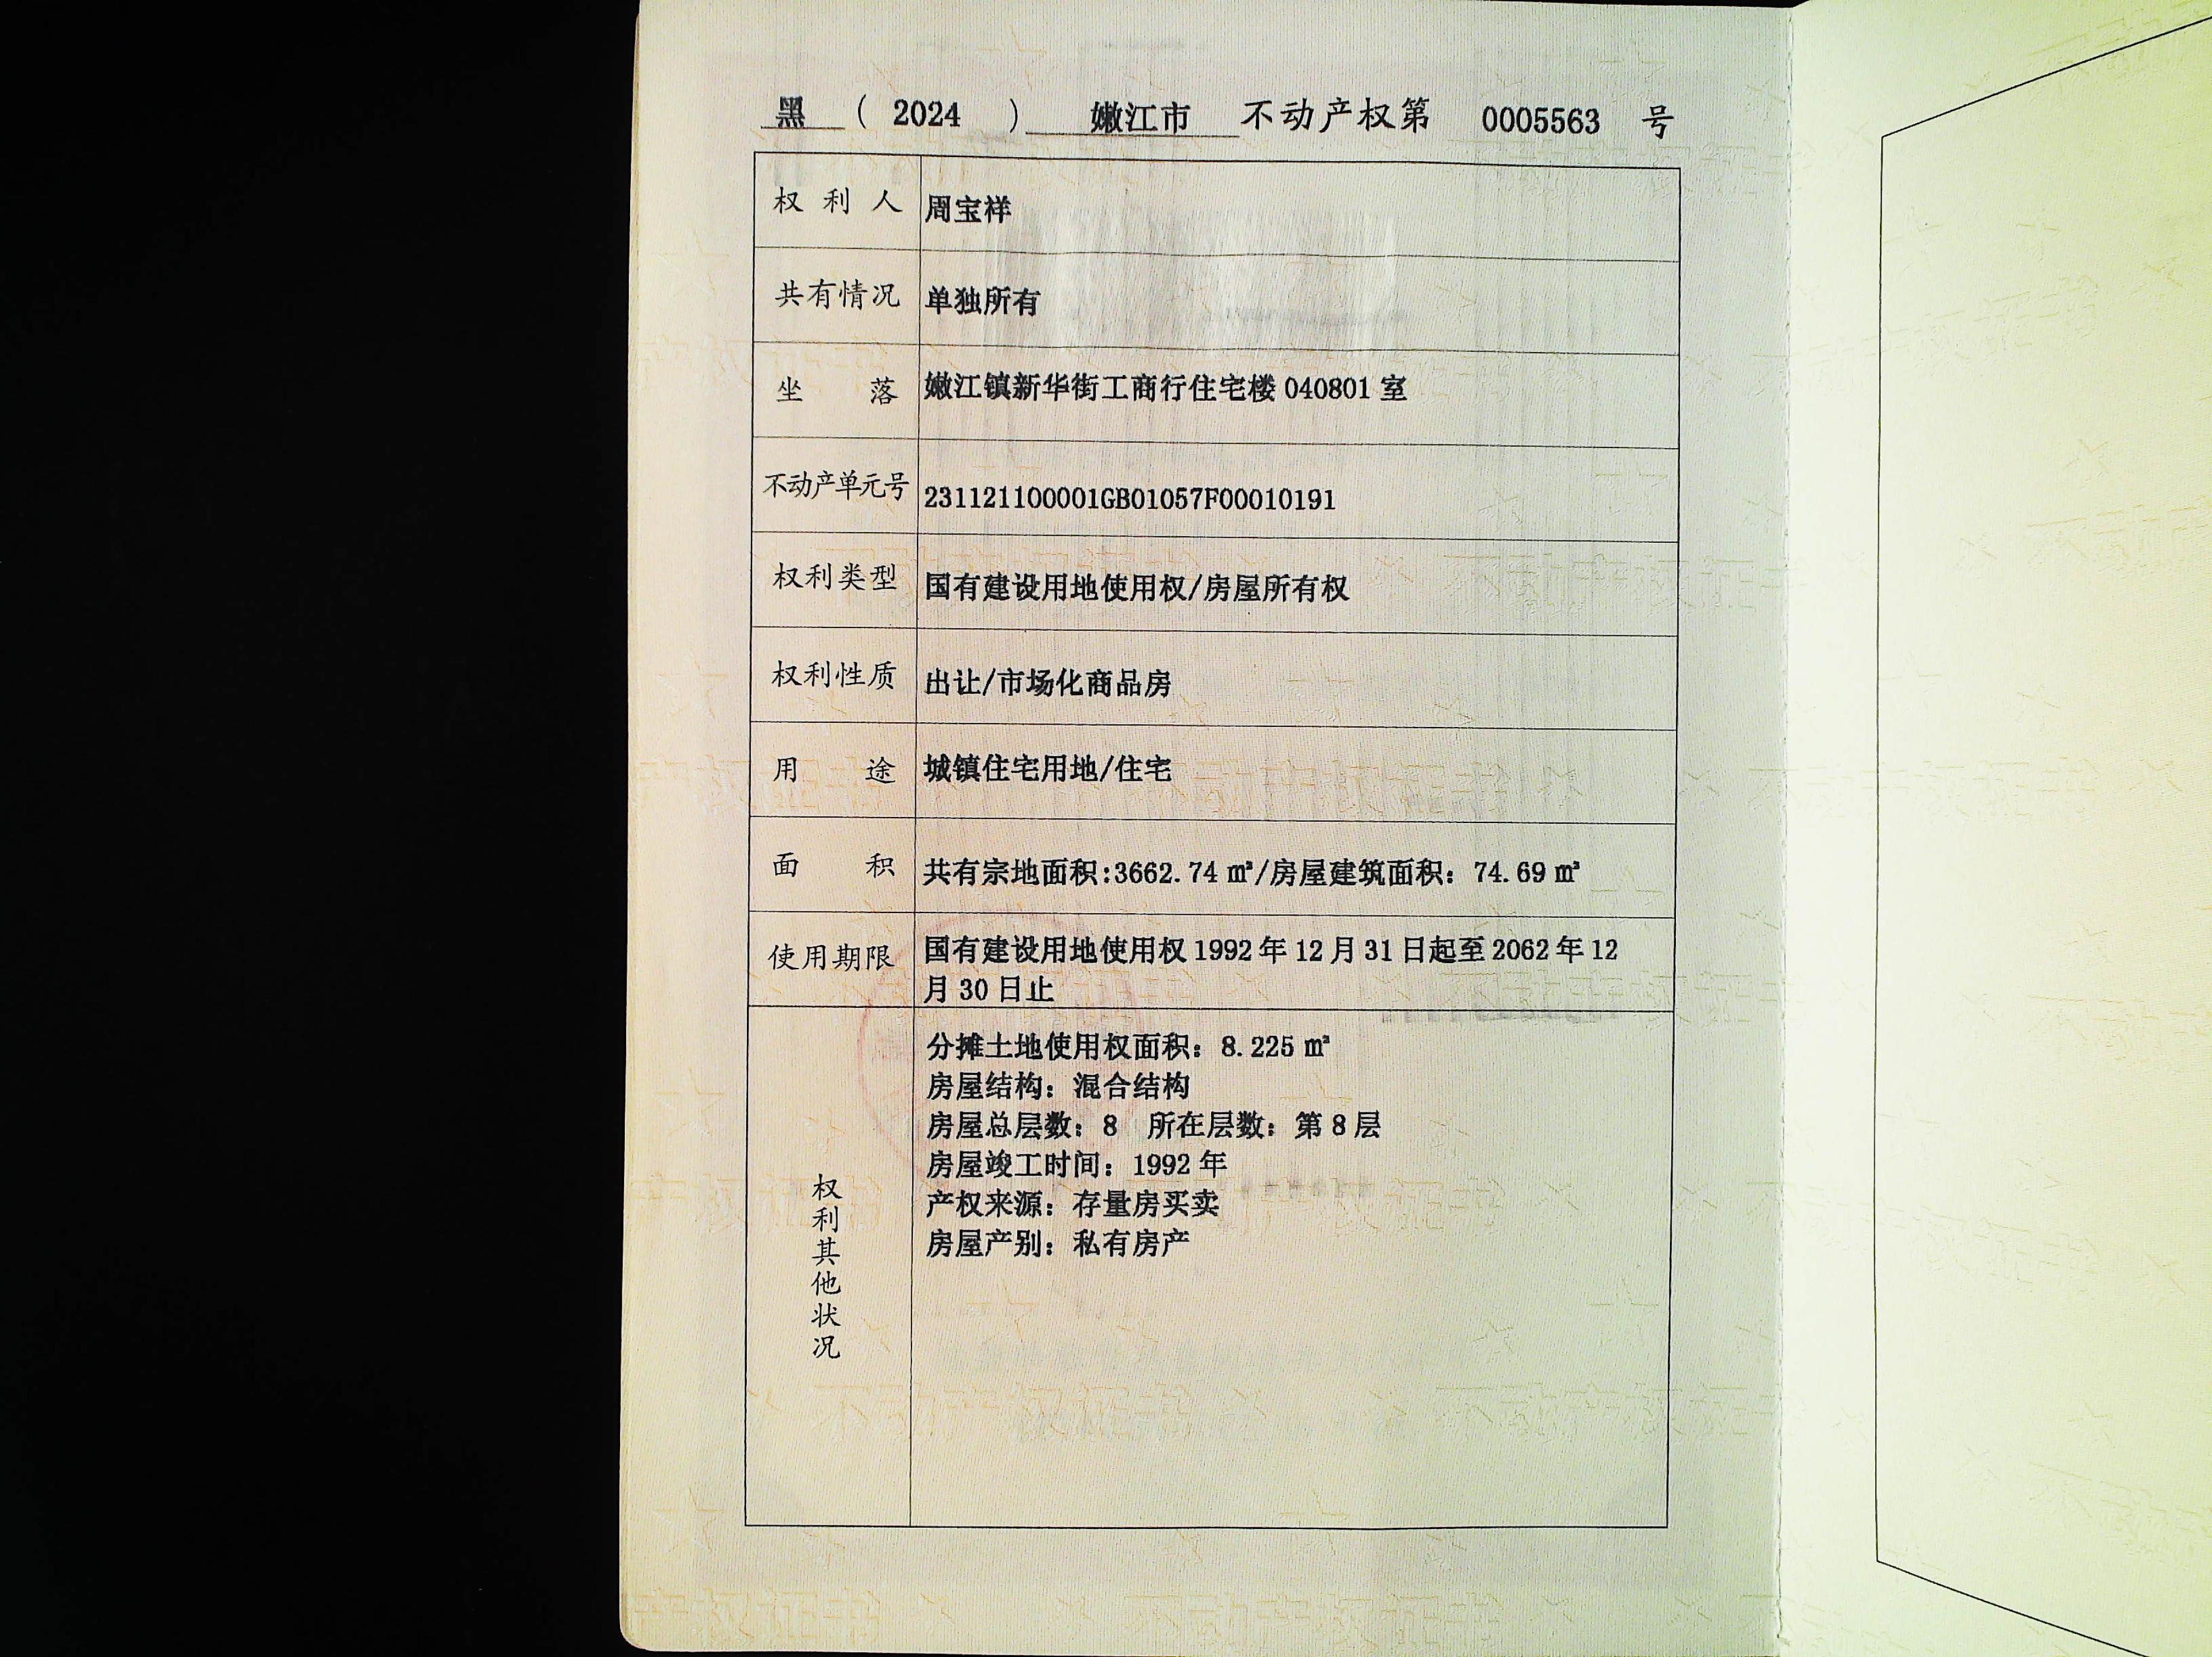 黑 ( 2024 ) 嫩江市 不动产权第 0005563 号
权利人 周宝祥
共有情况 单独所有
坐落 嫩江镇新华街工商行住宅楼 040801 室
不动产单元号 231121100001GB01057F00010191
权利类型 国有建设用地使用权/房屋所有权
权利性质 出让/市场化商品房
用途 城镇住宅用地/住宅
面积 共有宗地面积:3662.74 ㎡/房屋建筑面积：74.69 ㎡
使用期限 国有建设用地使用权 1992 年 12 月 31 日起至 2062 年 12
月 30 日止
权利其他状况
分摊土地使用权面积：8.225 ㎡
房屋结构：混合结构
房屋总层数：8 所在层数：第 8 层
房屋竣工时间：1992 年
产权来源：存量房买卖
房屋产别：私有房产